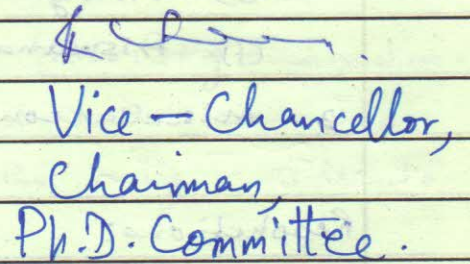 Vice - Chancellor,
Chairman,
Ph.D. Committee.